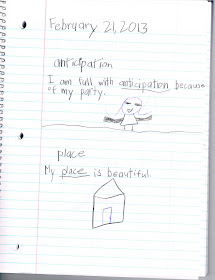 February 21, 2013
anticipation
I am full with anticipation because
of my party.
place
My place is beautiful.